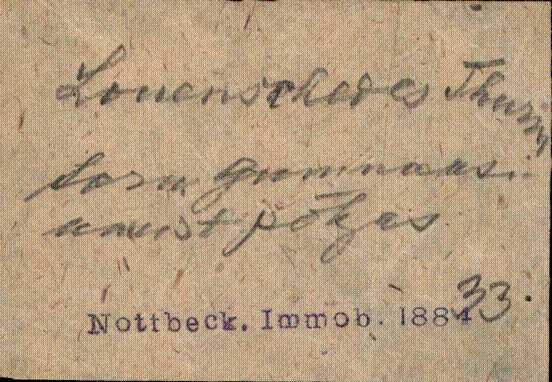 Louenschedes Thurm
torn gümnaasi
umist põhjas
Nottbeck. Immob. 1884 33.